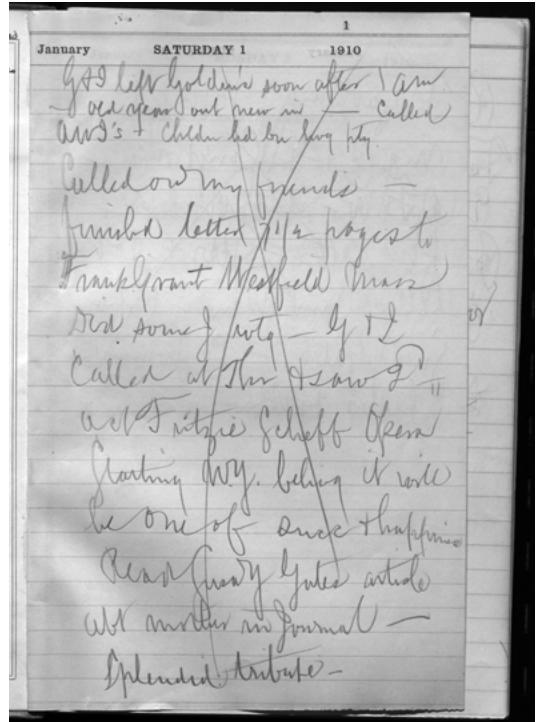 1
January SATURDAY 1 1910
G & I left Golden's soon after 1 am
— old year out new in — Called
& Childn hd bn hvg pty.
Called on my friends —
finished letter 7 1/2 pages to
Frank Grant Westfield Mass
Did some J wtg — G & I
Called at Thr & saw 2
act Fritzie Scheff Opera
Starting N.Y. belvg it will
be one of succ & happiness
Read Susa Y Gates article
abt mother in Journal —
Splendid tribute —